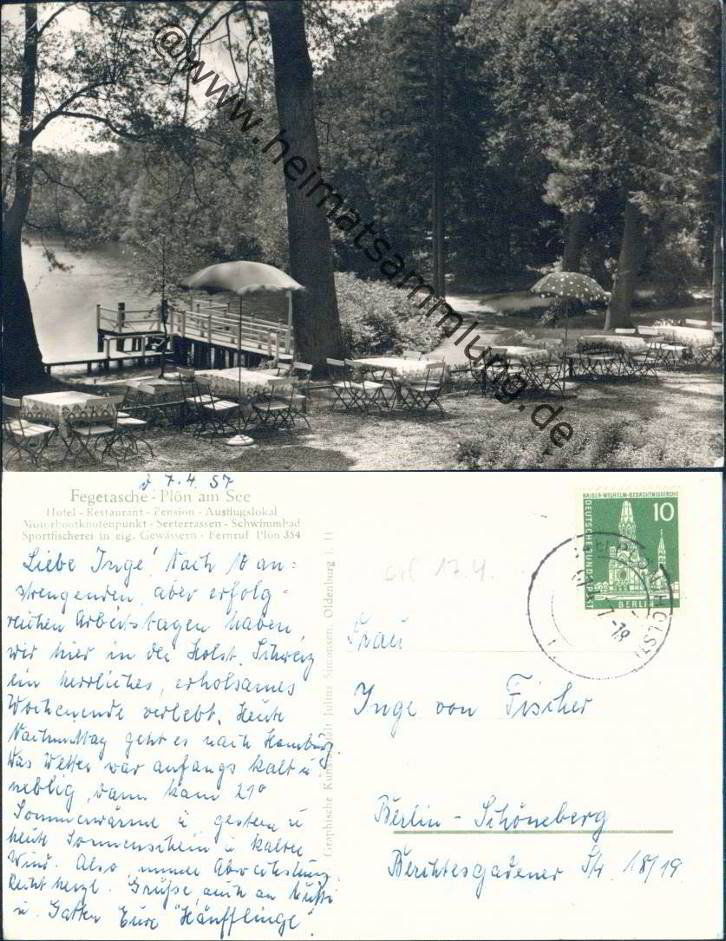 ©www.heimatsammlung.de
d 7.4.57
Fegetasche - Plön am See
Hotel - Restaurant - Pension - Ausflugslokal
Motorbootknotenpunkt - Seeterrassen - Schwimmbad
Sportfischerei in eig. Gewässern - Fernruf Plön 354
Liebe Inge! Nach 10 an-
strengenden, aber erfolg-
reichen Arbeitstagen haben
wir hier in der Holst. Schweiz
ein herrliches, erholsames
Wochenende verlebt. Heute
Nachmittag geht es nach Hamburg.
Das Wetter war anfangs kalt u.
neblig, dann kam 21°
Sommerwärme u. gestern u
heute Sonnenschein u. kalter
Wind. Also immer Abwechslung.
Recht herzl. Grüße, auch an Mutti
u. Gatten Eure "Hänfflinge".
Graphische Kunstanstalt Julius Simonsen, Oldenburg i. H
erl 17.4.
KAISER-WILHELM-GEDÄCHTNISKIRCHE
10
DEUTSCHE BUNDESPOST
BERLIN
HOLST
-18
Frau
Inge von Fischer
Berlin - Schöneberg
Berchtesgadener Str 18/19